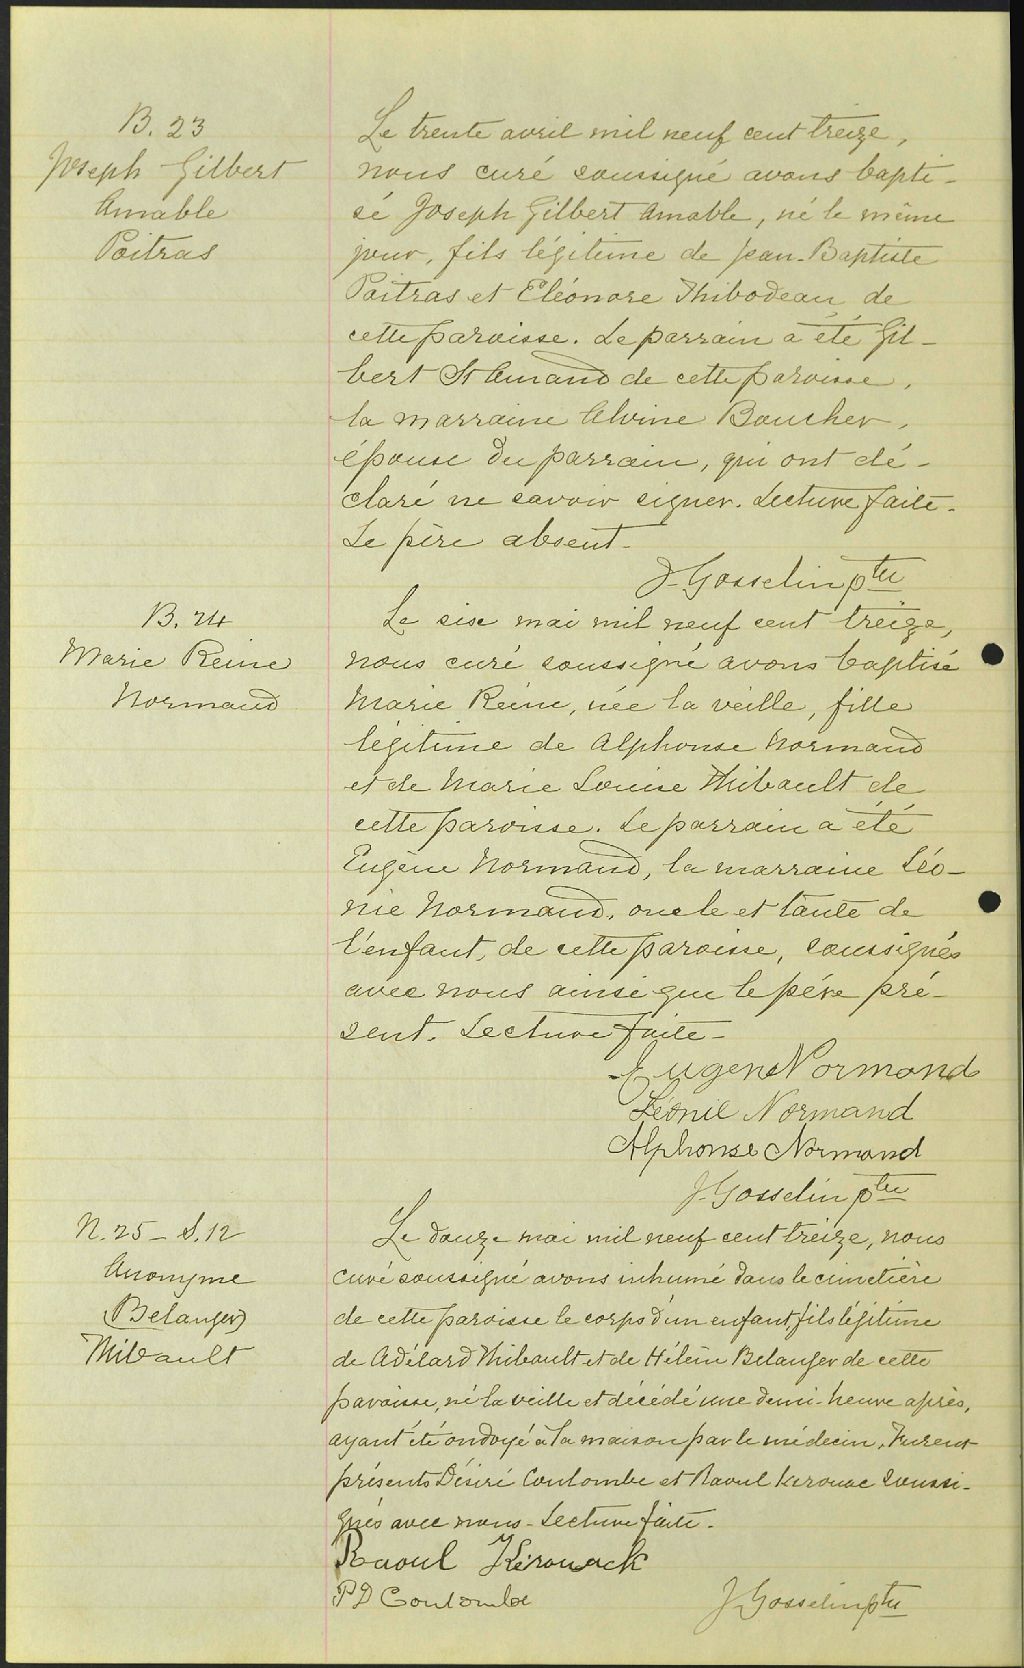 B. 23
Joseph Gilbert
Amable
Poitras
Le trente avril mil neuf cent treize,
nous curé soussigné avons bapti-
sé Joseph Gilbert Amable, né le même
jour, fils légitime de Jean-Baptiste
Poitras et Eléonore Thibodeau de
cette paroisse. Le parrain a été Gil-
bert St Amand de cette paroisse,
la marraine Alvine Boucher,
épouse du parrain, qui ont dé-
claré ne savoir signer. Lecture faite.
Le père absent.
J. Gosselin ptre
B. 24
Marie Reine
Normand
Le six mai mil neuf cent treize,
nous curé soussigné avons baptisé
Marie Reine, née la veille, fille
légitime de Alphonse Normand
et de Marie Louise Thibault de
cette paroisse. Le parrain a été
Eugène Normand, la marraine Léo-
nie Normand, oncle et tante de
l'enfant, de cette paroisse, soussignés
avec nous ainsi que le père pré-
sent. Lecture faite-
Eugene Normand
Léonie Normand
Alphonse Normand
J. Gosselin ptre
N. 25 - S. 12
Anonyme
(Belanger)
Thibault
Le douze mai mil neuf cent treize, nous
curé soussigné avons inhumé dans le cimetière
de cette paroisse le corps d'un enfant, fils légitime
de Adélard Thibault et de Hélène Belanger de cette
paroisse, né la veille et décédé une demi-heure après,
ayant été ondoyé à la maison par le médecin. Furent
présents Désiré Coulombe et Raoul Kerouac soussi-
gnés avec nous - Lecture faite.
Raoul Kérouack
P D Coulombe
J. Gosselin ptre